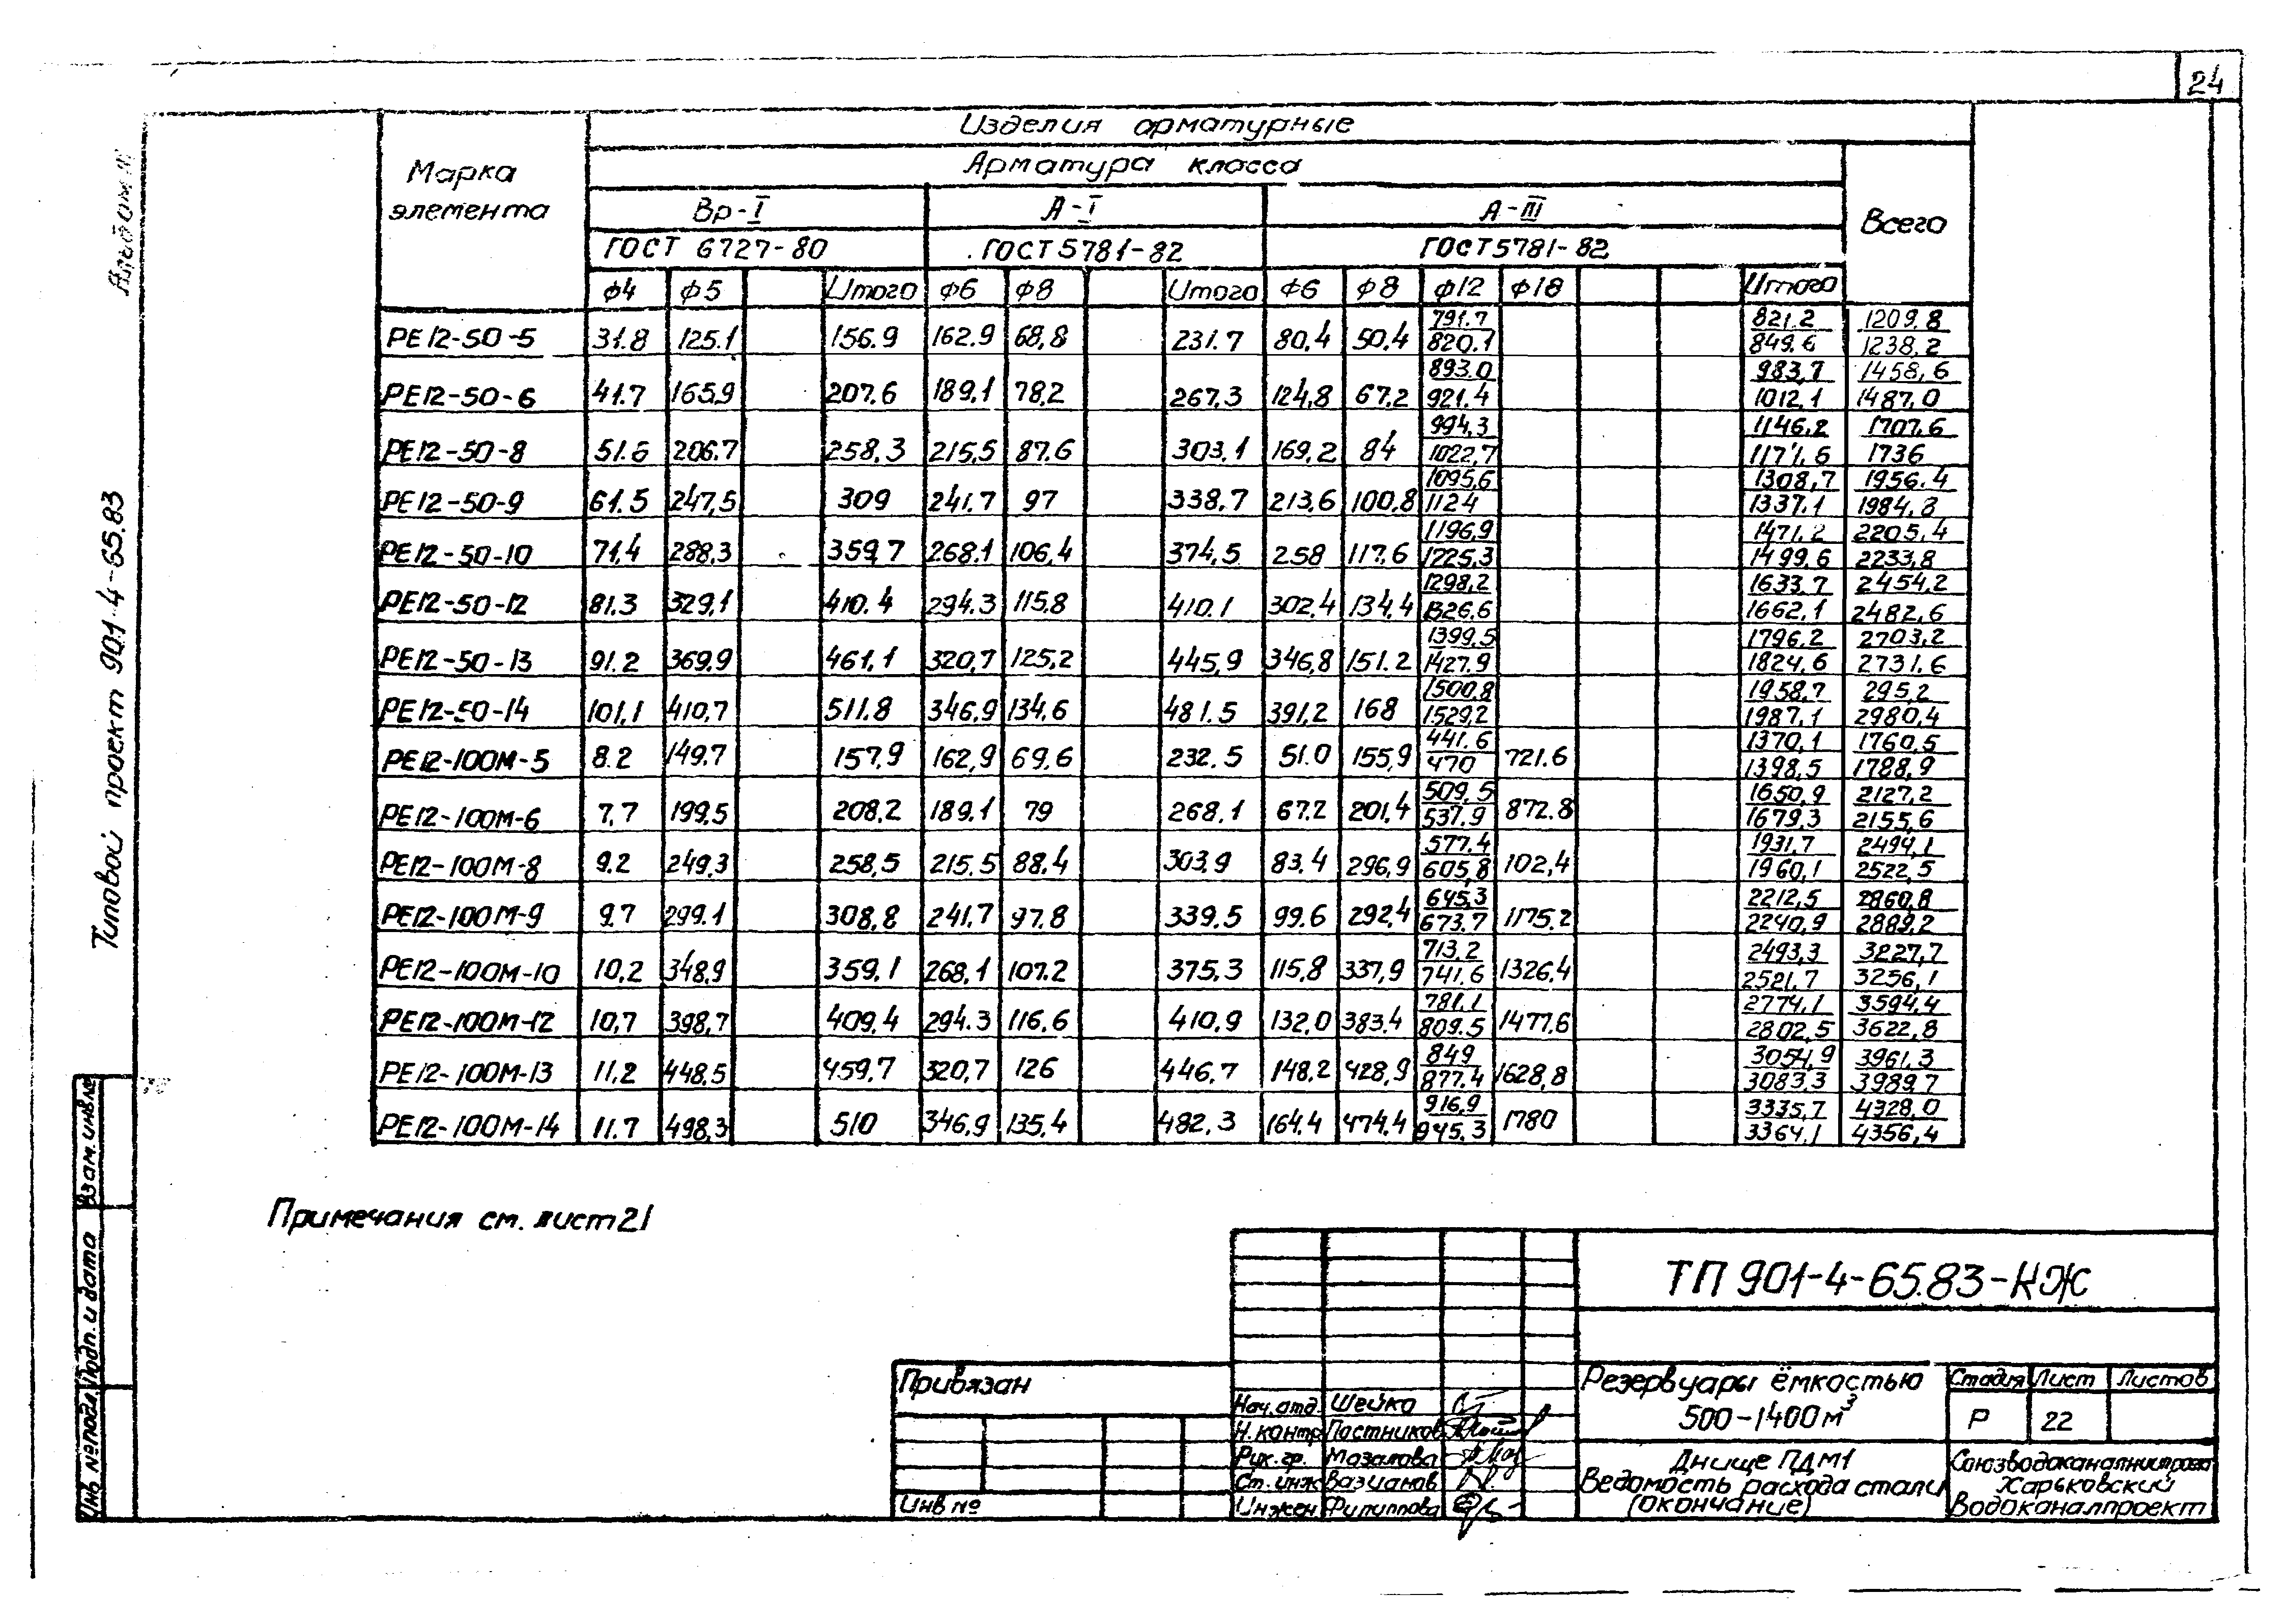 24
Альбом III
Типовой проект 901-4-65.83
Марка элемента
Изделия арматурные
Арматура класса
Всего
Вр-I
А-I
А-III
ГОСТ 6727-80
ГОСТ 5781-82
ГОСТ 5781-82
Ф4 Ф5 Итого Ф6 Ф8 Итого Ф6 Ф8 Ф12 Ф18 Итого
РЕ12-50-5 31.8 125.1 156.9 162.9 68,8 231.7 80,4 50.4 791.7/820.1 821.2/849.6 1209.8/1238.2
РЕ12-50-6 41.7 165.9 207.6 189.1 78,2 267.3 124,8 67.2 893.0/921.4 983,7/1012,1 1458,6/1487.0
РЕ12-50-8 51.6 206.7 258.3 215,5 87.6 303.1 169,2 84 994,3/1022,7 1146.2/1174.6 1707.6/1736
РЕ12-50-9 61.5 247,5 309 241.7 97 338.7 213,6 100,8 1095,6/1124 1308,7/1337.1 1956.4/1984,8
РЕ12-50-10 71,4 288,3 359,7 268.1 106,4 374,5 258 117.6 1196,9/1225,3 1471.2/1499.6 2205.4/2233,8
РЕ12-50-12 81.3 329,1 410.4 294.3 115.8 410.1 302.4 134.4 1298,2/1326.6 1633.7/1662.1 2454,2/2482,6
РЕ12-50-13 91.2 369.9 461.1 320,7 125,2 445,9 346,8 151.2 1399.5/1427.9 1796.2/1824.6 2703,2/2731.6
РЕ12-50-14 101,1 410,7 511.8 346.9 134.6 481.5 391,2 168 1500,8/1529,2 1958,7/1987.1 295,2/2980.4
РЕ12-100М-5 8.2 149.7 157,9 162,9 69.6 232.5 51.0 155,9 441.6/470 721.6 1370,1/1398,5 1760,5/1788,9
РЕ12-100М-6 7,7 199,5 208,2 189.1 79 268.1 67.2 201,4 509,5/537.9 872.8 1650,9/1679,3 2127,2/2155,6
РЕ12-100М-8 9.2 249,3 258,5 215.5 88.4 303,9 83.4 296,9 577.4/605,8 102,4 1931.7/1960,1 2494,1/2522,5
РЕ12-100М-9 9.7 299.1 308,8 241.7 97.8 339.5 99.6 292,4 645,3/673.7 1175.2 2212,5/2240,9 2860,8/2889,2
РЕ12-100М-10 10,2 348,9 359,1 268,1 107.2 375.3 115,8 337,9 713,2/741.6 1326,4 2493,3/2521.7 3227,7/3256,1
РЕ12-100М-12 10,7 398,7 409,4 294.3 116,6 410,9 132,0 383.4 781,1/809.5 1477,6 2774,1/2802,5 3594,4/3622,8
РЕ12-100М-13 11,2 448,5 459,7 320,7 126 446.7 148,2 428,9 849/877.4 1628,8 3054,9/3083,3 3961,3/3989,7
РЕ12-100М-14 11.7 498,3 510 346,9 135,4 482,3 164.4 474,4 916,9/945,3 1780 3335,7/3364,1 4328,0/4356,4
Примечания см. лист 21
Инв №подл.
Подп. и дата
Взам. инв.№
Привязан
Инв №
Нач. отд. Шейко
Н. контр Пастников
Рук. гр. Мозалова
Ст. инж
Инжен. Филиппова
ТП 901-4-65.83-КЖ
Резервуары ёмкостью
500-1400 м³
Стадия Лист Листов
Р 22
Днище ПДМ1
Ведомость расхода стали
(окончание)
Союзводоканалниипроект
Харьковский
Водоканалпроект